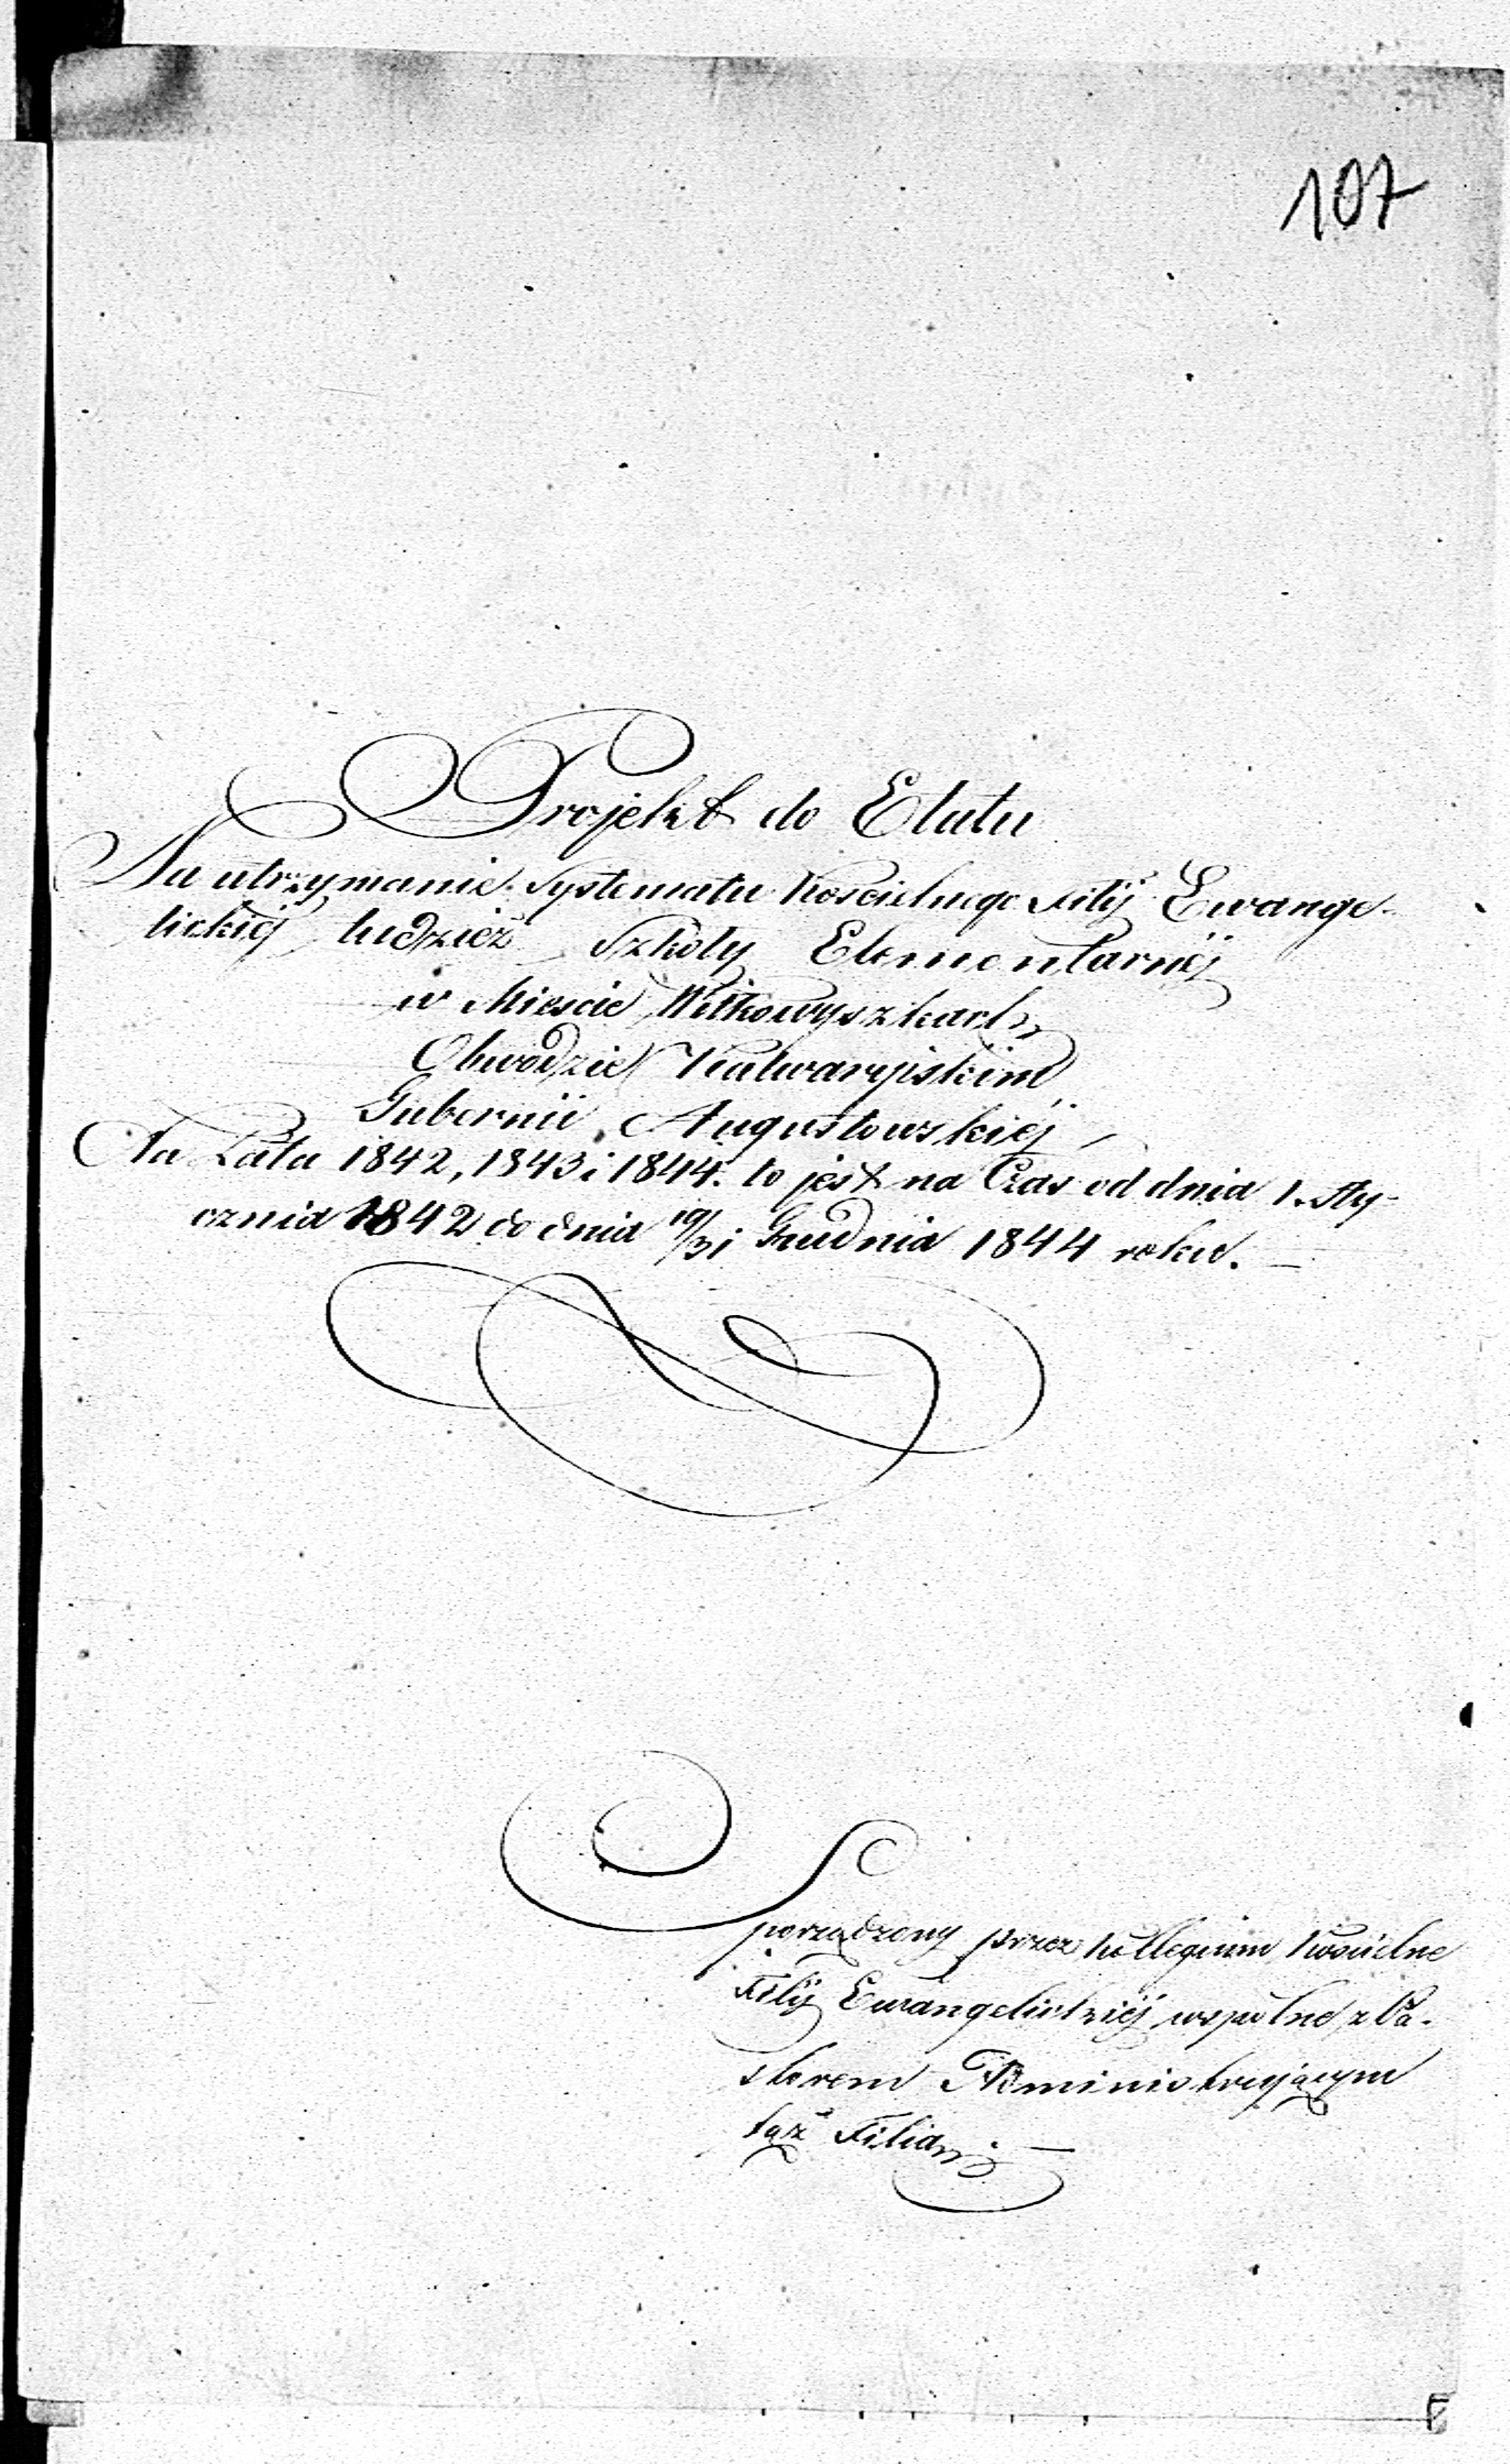 107
Projekt do Etatu
Na utrzymanie Systematu Kościelnego Filij Ewange-
lickiéj tudzież Szkoły Elementarnéj
w Mieście Wiłkowyszkach
Obwodzie Kalwaryiskim
Gubernii Augustowskiéj
Na Lata 1842, 1843 i 1844. to jest na Czas od dnia 1. Sty-
cznia 1842 do dnia 19/31 Grudnia 1844 roku.
Sporządzony przez Kollegium Kościelne
Filij Ewangelickiéj wspólnie z Pa-
storem Administrującym
tąż Filią